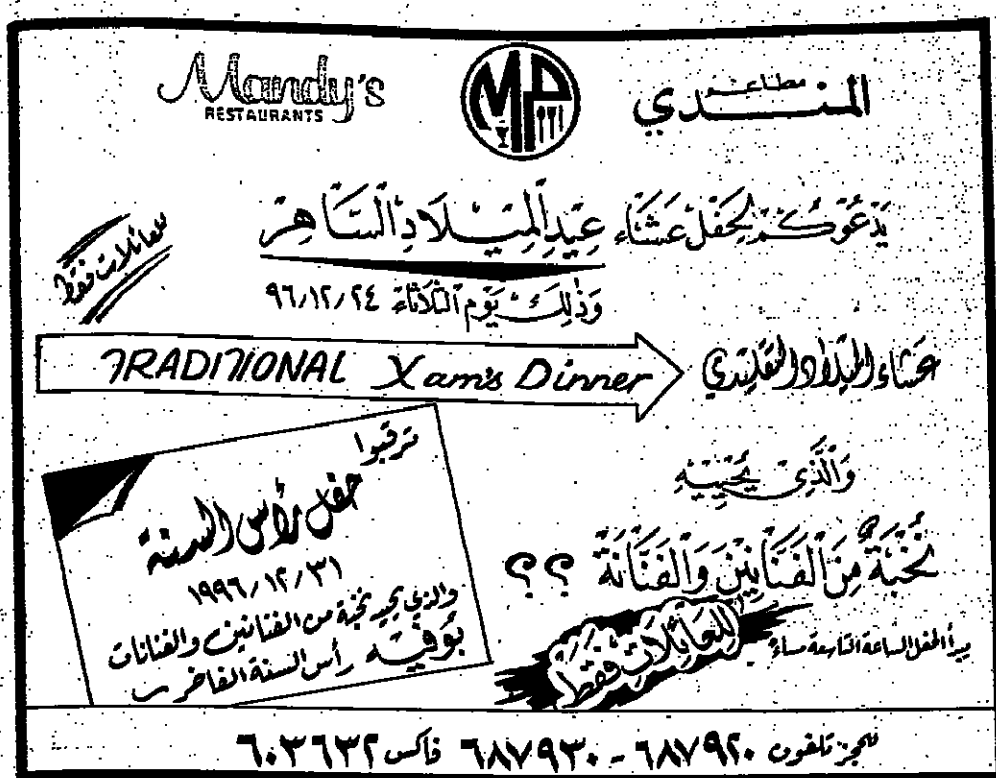 Mandy's
RESTAURANTS
MP
مطاعم
المنــدي
يَدعُوكُم لِحَفل عَشَاء عِيدِ المِيلَادِ السَّاهِر
للعائلات فقط
وَذٰلِكَ يَوم الثلاثاء ٩٦/١٢/٢٤
TRADITIONAL Xam's Dinner
عشاء الميلاد التقليدي
وَالَّذِي يُحْيِيْهِ
نُخْبَةٌ مِنَ الفَنَّانِيْنَ وَالفَنَّانَةِ ؟؟
للعَائِلَاتِ فَقَط
يبدأ الحفل الساعة التاسعة مساءً
ترقبوا
حفل رأس السنة
١٩٩٦/١٢/٣١
والذي يحييه نخبة من الفنانين والفنانات
بوفيه رأس السنة الفاخر
للحجز تلفون ٦٨٧٩٢٠ - ٦٨٧٩٣٠ فاكس ٦٠٣٦٣٢